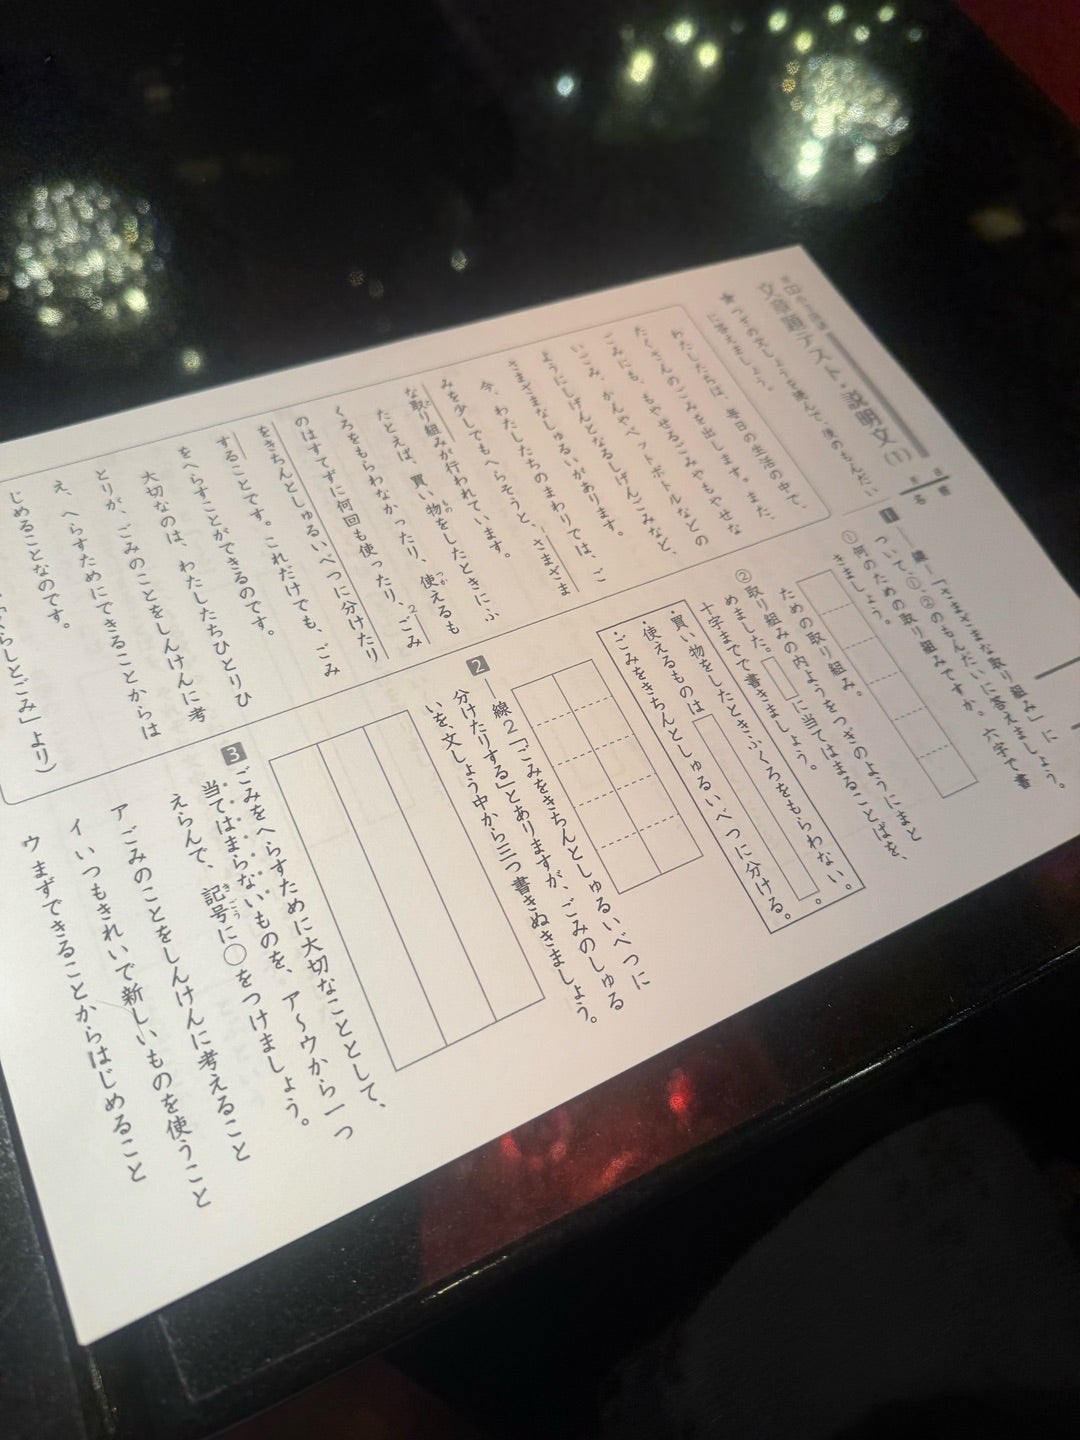 文章題テスト・説明文(1)
★つぎの文しょうを読んで、後のもんだい
に答えましょう。
わたしたちは、毎日の生活の中で、
たくさんのごみを出します。また、
ごみにも、もやせるごみやもやせな
いごみ、かんやペットボトルなどの
ようにしげんとなるしげんごみなど、
さまざまなしゅるいがあります。
今、わたしたちのまわりでは、ご
みを少しでもへらそうと、さまざま
な取り組みが行われています。
たとえば、買い物をしたときにふ
くろをもらわなかったり、使えるも
のはすてずに何回も使ったり、2ごみ
をきちんとしゅるいべつに分けたり
することです。これだけでも、ごみ
をへらすことができるのです。
大切なのは、わたしたちひとりひ
とりが、ごみのことをしんけんに考
え、へらすためにできることからは
じめることなのです。
らしとごみ」より)
1 ―線1「さまざまな取り組み」に
ついて、①、②のもんだいに答えましょう。
①何のための取り組みですか。六字で書
きましょう。
ための取り組み。
②取り組みの内ようをつぎのようにまと
めました。 に当てはまることばを、
十字までで書きましょう。
・買い物をしたときふくろをもらわない。
・使えるものは 。
・ごみをきちんとしゅるいべつに分ける。
2 ―線2「ごみをきちんとしゅるいべつに
分けたりする」とありますが、ごみのしゅる
いを、文しょう中から三つ書きぬきましょう。
3 ごみをへらすために大切なこととして、
当てはまらないものを、ア〜ウから一つ
えらんで、記号に○をつけましょう。
ア ごみのことをしんけんに考えること
イ いつもきれいで新しいものを使うこと
ウ まずできることからはじめること